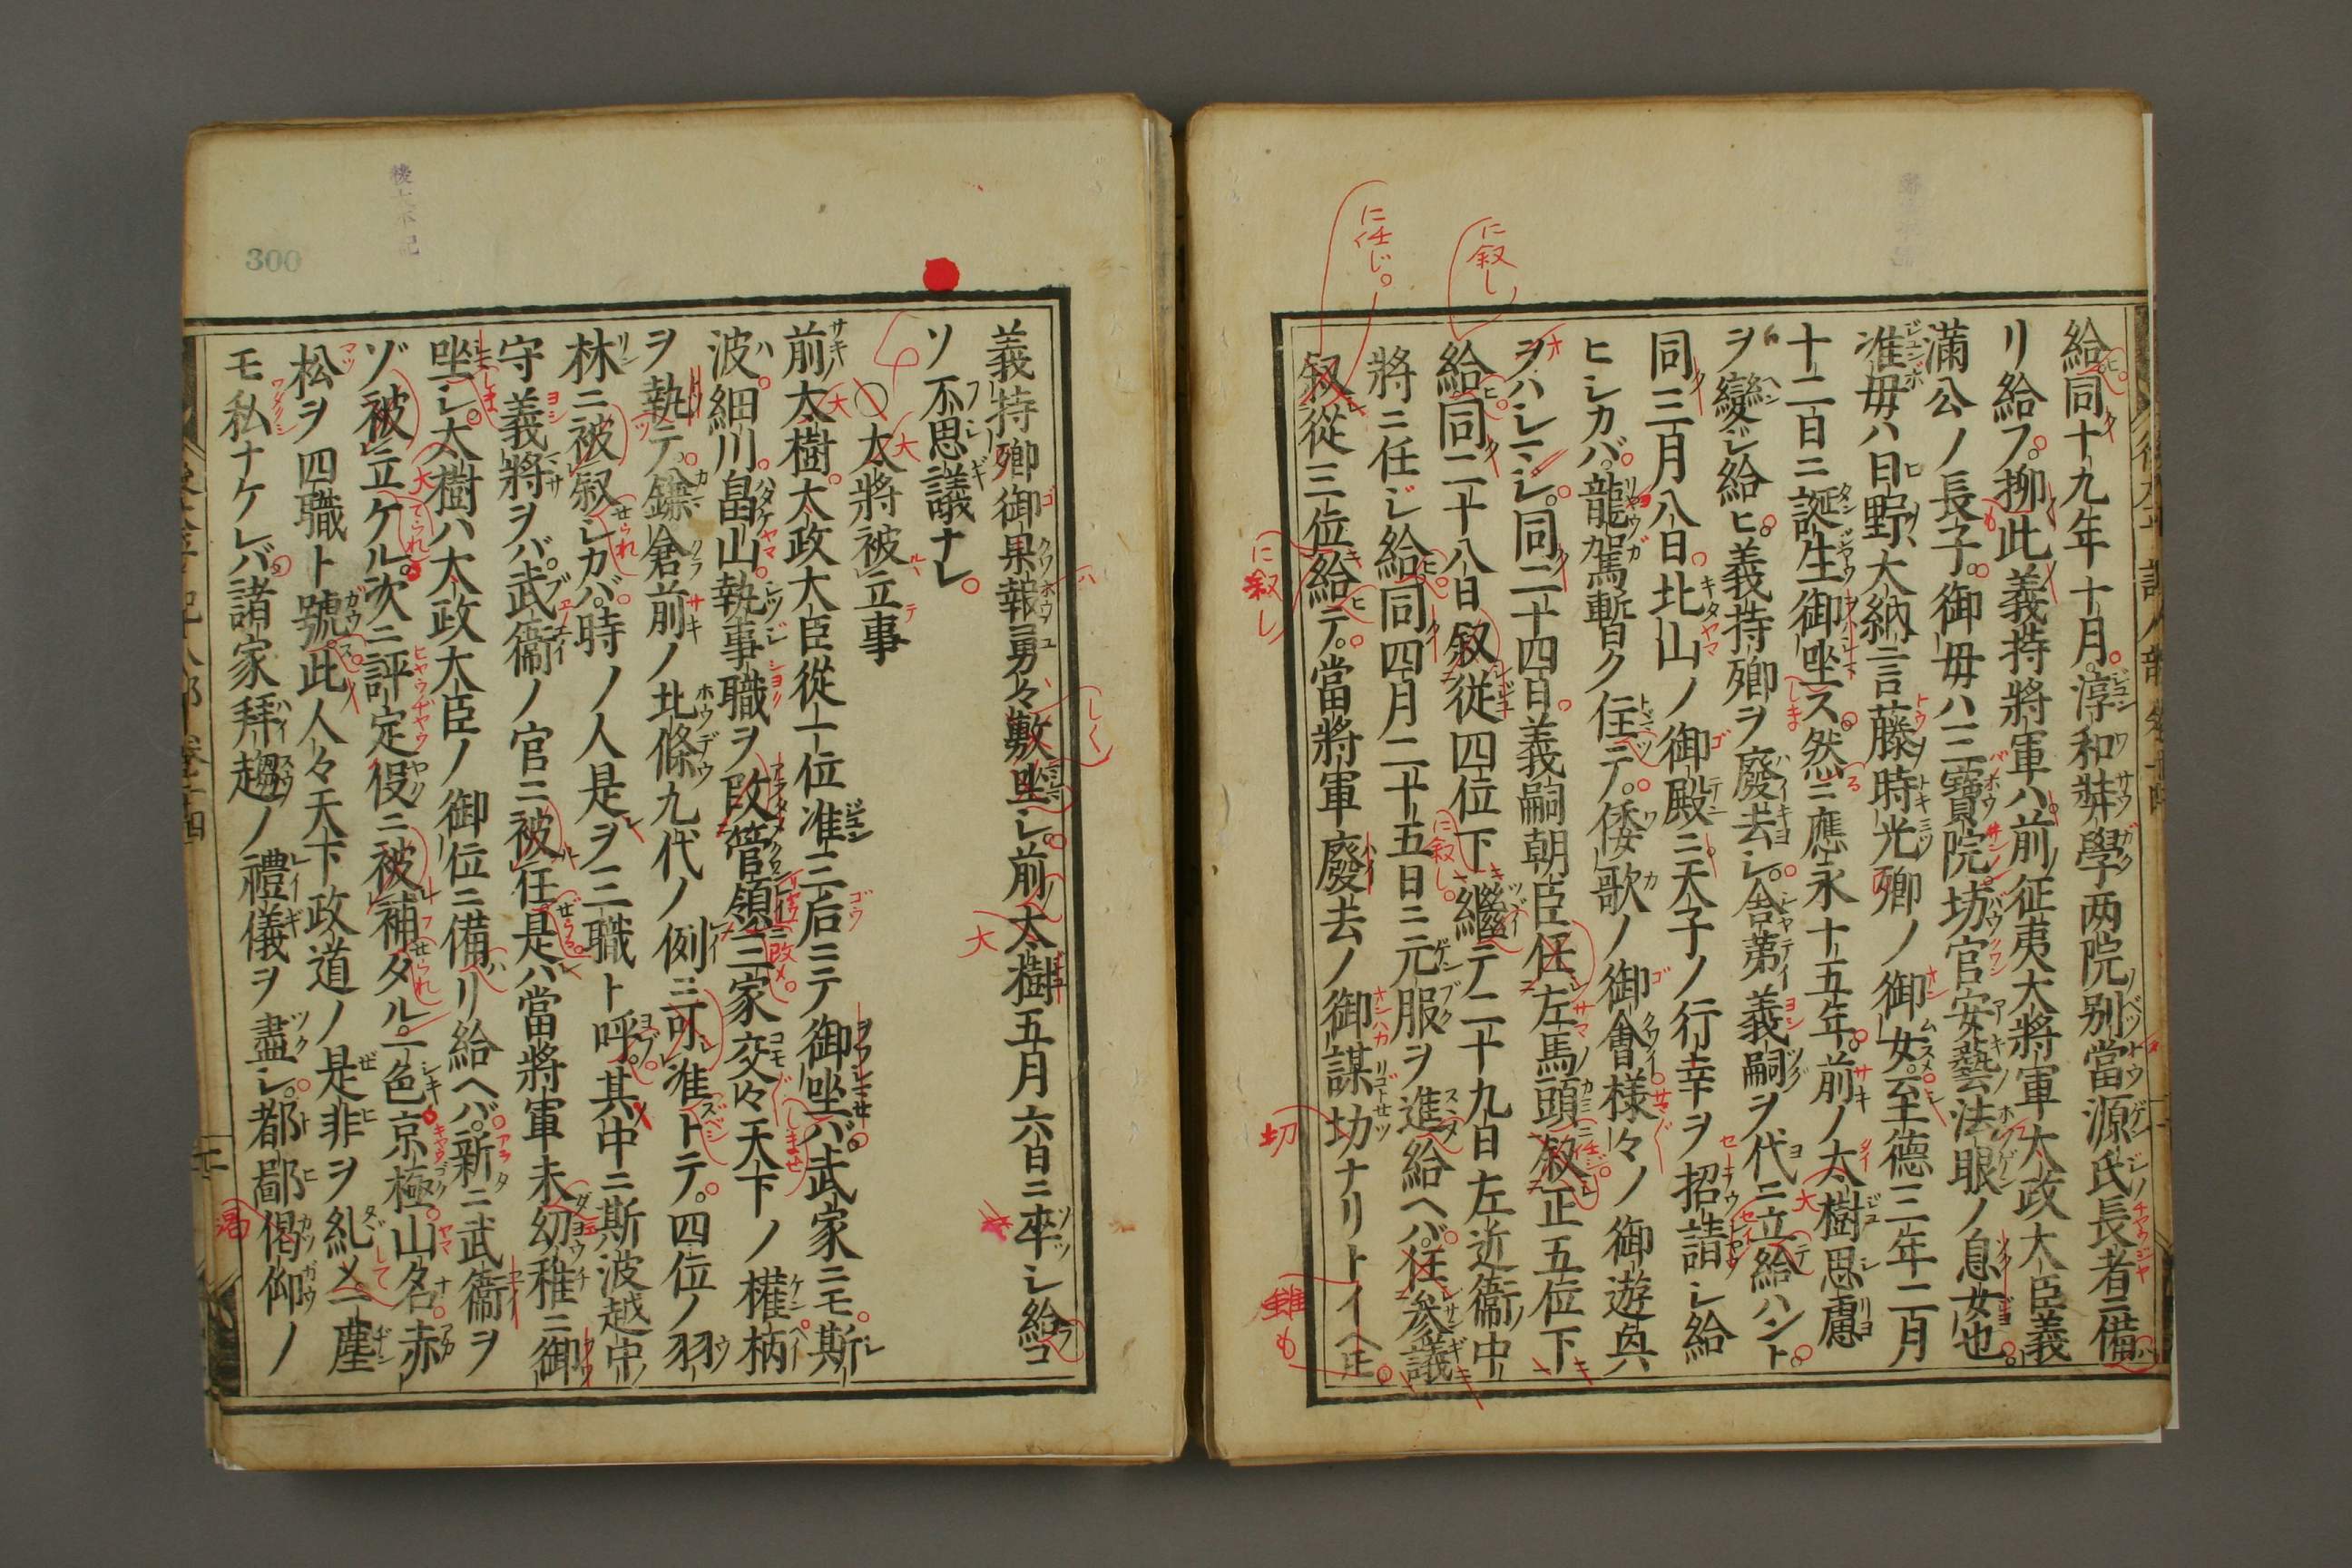 給同十九年十月淳和奘學両院別當源氏長者ニ備
リ給フ抑此義持將軍ハ前征夷大將軍太政大臣義
滿公ノ長子御母ハ三寶院坊官安藝法眼ノ息女也
准母ハ日野大納言藤時光卿ノ御女至德三年二月
十二日ニ誕生御坐ス然ニ應永十五年前ノ大樹思慮
ヲ變ジ給ヒ義持卿ヲ廢去シ舎弟義嗣ヲ代ニ立給ハント
同三月八日北山ノ御殿ニ天子ノ行幸ヲ招請シ給
ヒシカバ龍駕暫ク住テ倭歌ノ御會樣々ノ御遊臾
ヲハシニシ同二十四日義嗣朝臣任左馬頭叙正五位下
給同二十八日叙從四位下繼テ二十九日左近衞中
將ニ任ジ給同四月二十五日ニ元服ヲ進給ヘバ任參議
叙從三位給テ當將軍廢去ノ御謀功ナリトイヘ𪜈
義持卿御果報勇々敷坐シ前大樹五月六日ニ卒シ給コ
ソ不思議ナレ
太將被立事
前太樹太政大臣從一位准三后ニテ御坐バ武家ニモ斯
波細川畠山執事職ヲ改管領三家交々天下ノ權柄
ヲ執テ鎌倉前ノ北條九代ノ例ニ可准トテ四位ノ羽
林ニ被叙シカバ時ノ人是ヲ三職ト呼其中ニ斯波越中
守義將ヲバ武衞ノ官ニ被任是ハ當將軍未幼稚ニ御
坐シ太樹ハ大政大臣ノ御位ニ備リ給ヘバ新ニ武衞ヲ
ゾ被立ケル次ニ評定役ニ被補タル一色京極山名赤
松ヲ四職ト號此人々天下政道ノ是非ヲ糺メ一塵
モ私ナケレバ諸家拜趨ノ禮儀ヲ盡シ都鄙偈仰ノ
300
に任じ
に叙し
に叙し
切
雖も
大
渇